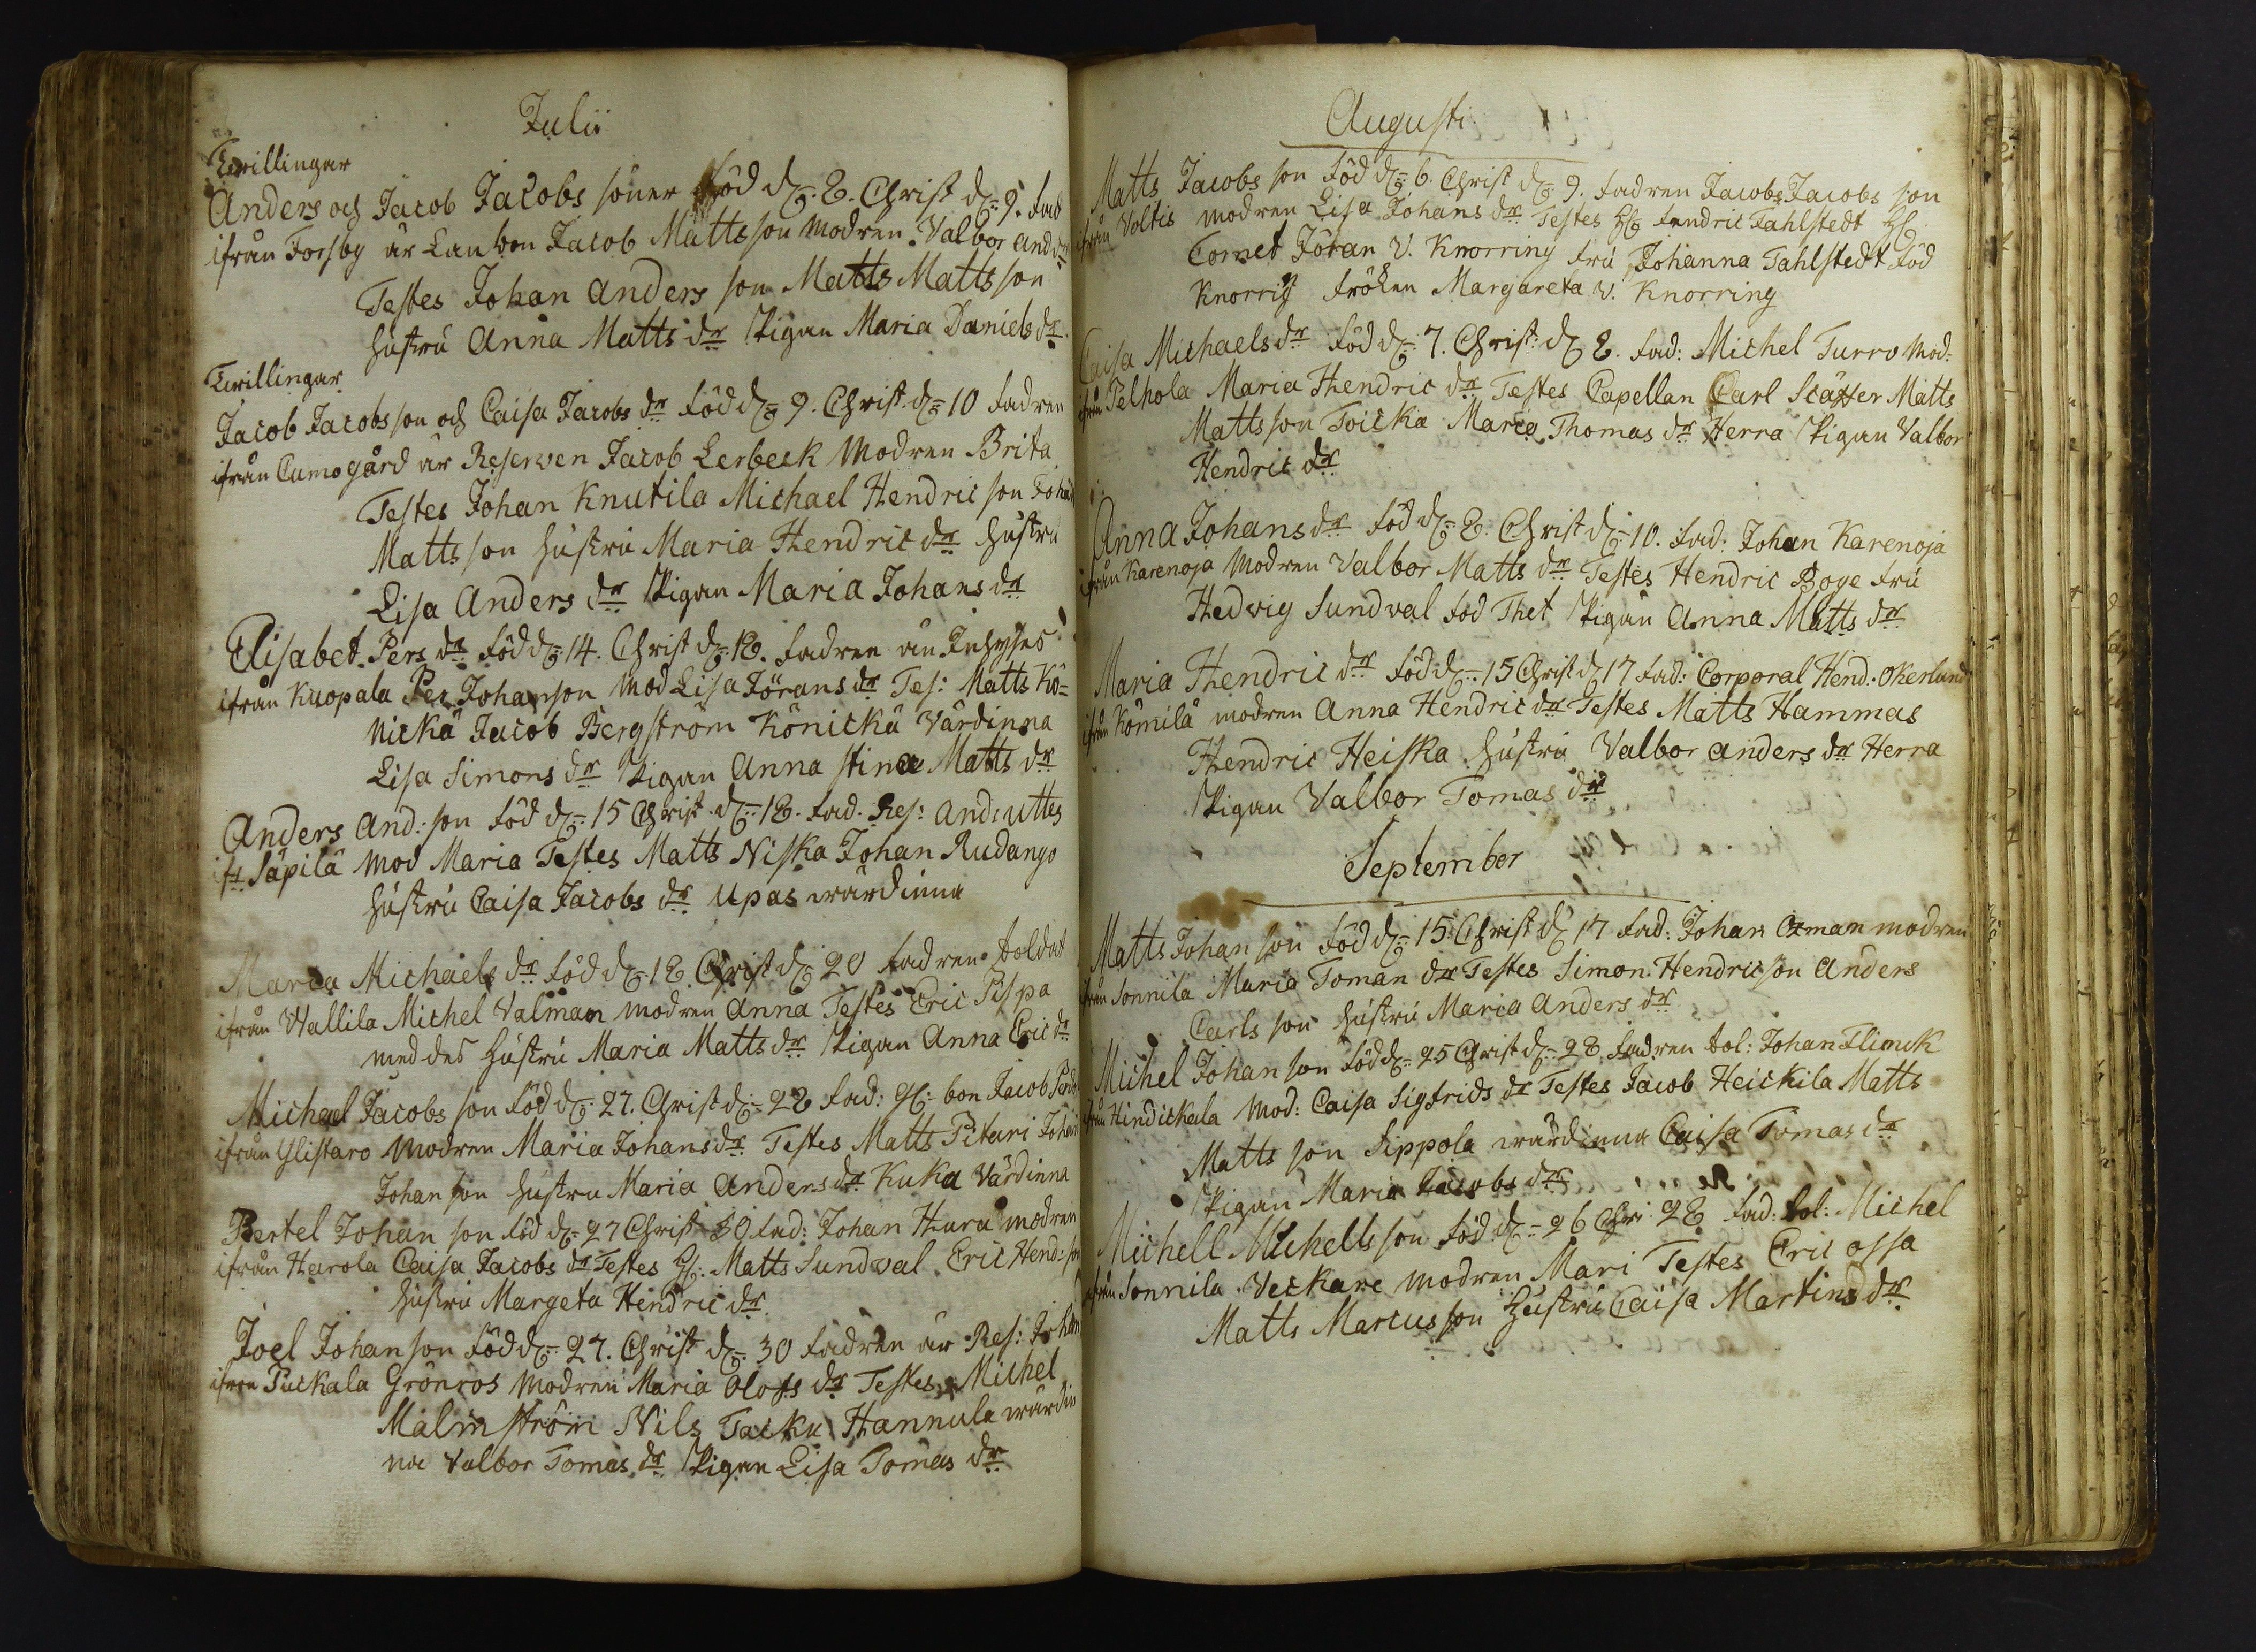 Julii
Twillingar
Anders och Jacob Jacobs söner född d. 8. Christ d. 9. fad
ifrån Forsby är Lanbon Jacob Mattsson modren Valbor And dr
Testes Johan Anders son Matts Matts son
hustru Anna Matts dr Pigan Maria Daniels dr
Twillingar
Jacob Jacobsson och Caisa Jacobs dr född d. 9. Christ d. 10 fadren
ifrån Cumogård är Reserven Jacob Lerbeck Modren Brita
Testes Johan Knutila Michael Hendric son Joha
Matts son hustru Maria Hendric dr hustru
Lisa Anders dr Pigan Maria Johans dr
Elisabet Pers dr född d. 14. Christ d. 18. fadren en Inhyses
ifrån Kuopala Per Johanson mod Lisa Jörans dr Tes: Matts Kö=
nickä Jacob Bergström Könickä Värdinna
Lisa Simons dr Pigan Anna Stina Matts dr
Anders And: son föd d. 15 Christ d. 18. fad. Res: And: uttes
ifr Säpilä mod Maria Testes Matts Niska Johan Rudango
hustru Caisa Jacobs dr Upas wärdinna
Maria Michaels dr föd d. 18. Christ d. 20 fadren Soldat
ifrån Wallila Michel Valman modren Anna Testes Eric Pispa
med des hustru Maria Matts dr Pigan Anna Eric dr
Michael Jacobs son föd d. 27. Christ d. 28 fad: bon Jacob
ifrån Ylistaro modren Maria Johans dr Testes Matts Pitari Joha
Johan son hustru Maria Anders dr Kuka Värdinna
Bertel Johan son föd d. 27 Christ 30 fad: Johan Hara modren
ifrån Harola Caisa Jacobs dr Testes H: Matts Sundwal Eric Hend: son
hustru Margeta Hendric dr
Joel Johan son född d. 27. Christ d. 30 fadren är Res: Johan
ifrån Puckala Grönros modren Maria Olofs dr Testes Michel
Malmström Nils Tacku Hannula wärdin
na Valbor Tomas dr Pigan Lisa Tomas dr
Augusti
Matts Jacobs son föd d. 6. Christ d. 9. fadren Jacobs Jacobs son
ifrån Voltis modren Lisa Johans dr Testes H: Fendric Tahlstedt H:
Cornet Jöran V. Knorring fru Johanna Tahlstedt föd
Knorring fröken Margareta v. Knorring
Caisa Michaels dr föd d. 7. Christ: d. 8. fad: Michel Turro mod:
ifrån Pelhola Maria Hendric dr Testes Capellan Carl Matts
Matts son Toicka Maria Thomas dr Herra Pigan Valbor
Hendric dr
Anna Johans dr föd d. 8. Christ d. 10. fad: Johan Karenoja
ifrån Karenoja modren Valbor Matts dr Testes Hendric Boye fru
Hedvig Sundval föd Thet Pigan Anna Matts dr
Maria Hendric dr föd d. 15 Christ d 17 fad: Corporal Hend. Okerlund
ifrån Kömilä modren Anna Hendric dr Testes Matts Hammas
Hendric Heiska hustru Valbor Anders dr Herra
Pigan Valbor Tomas dr
September
Matts Johan son föd d. 15 Christ d 17 fad: Johan modren
ifrån Sonnila Maria Toman dr Testes Simon Hendricson Anders
Carls son hustru Maria Anders dr
Michel Johan son född d. 25 Christ d. 28. fadren Sol: Johan Flinck
ifrån Hindickala mod: Caisa Sigfrids dr Testes Jacob Heickila Matts
Matts son Sippola wärdinna Caisa Tomas dr
Pigan Maria Jacobs dr
Michell Mickells son föd d. 26 Chri 28 fad: Sol: Michel
ifrån Sonnila Veckare modren Mari Testes Eric ossa
Matts Marcus son Hustru Caisa Martins dr